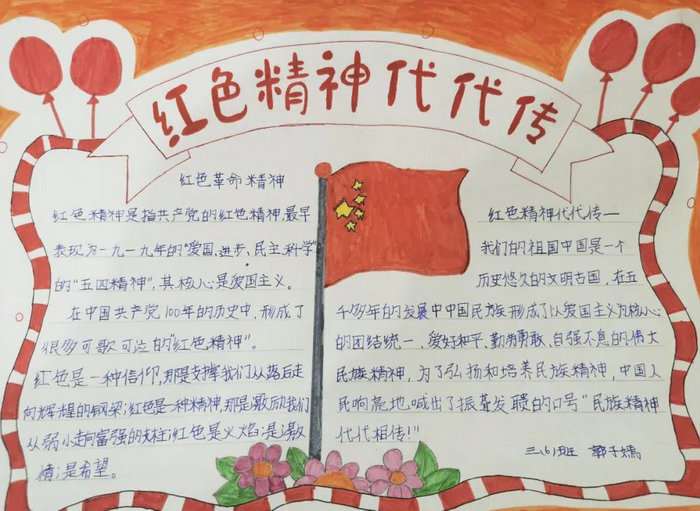 红色精神代代传
红色革命精神
红色精神是指共产党的红色精神,最早
表现为一九一九年的“爱国、进步、民主、科学”
的“五四精神”,其核心是爱国主义。
在中国共产党100年的历史中,形成了
很多可歌可泣的“红色精神”。
红色是一种信仰,那是支撑我们从落后走
向辉煌的钢梁;红色是一种精神,那是激励我们
从弱小走向富强的支柱;红色是火焰,是激
情;是希望。
红色精神代代传一
我们的祖国中国是一个
历史悠久的文明古国,在五
千多年的发展中中国民族形成了以爱国主义为核心
的团结统一、爱好和平、勤劳勇敢、自强不息的伟大
民族精神,为了弘扬和培养民族精神,中国人
民响亮地喊出了振聋发聩的口号“民族精神
代代相传!”
三(6)班 郭子嫣